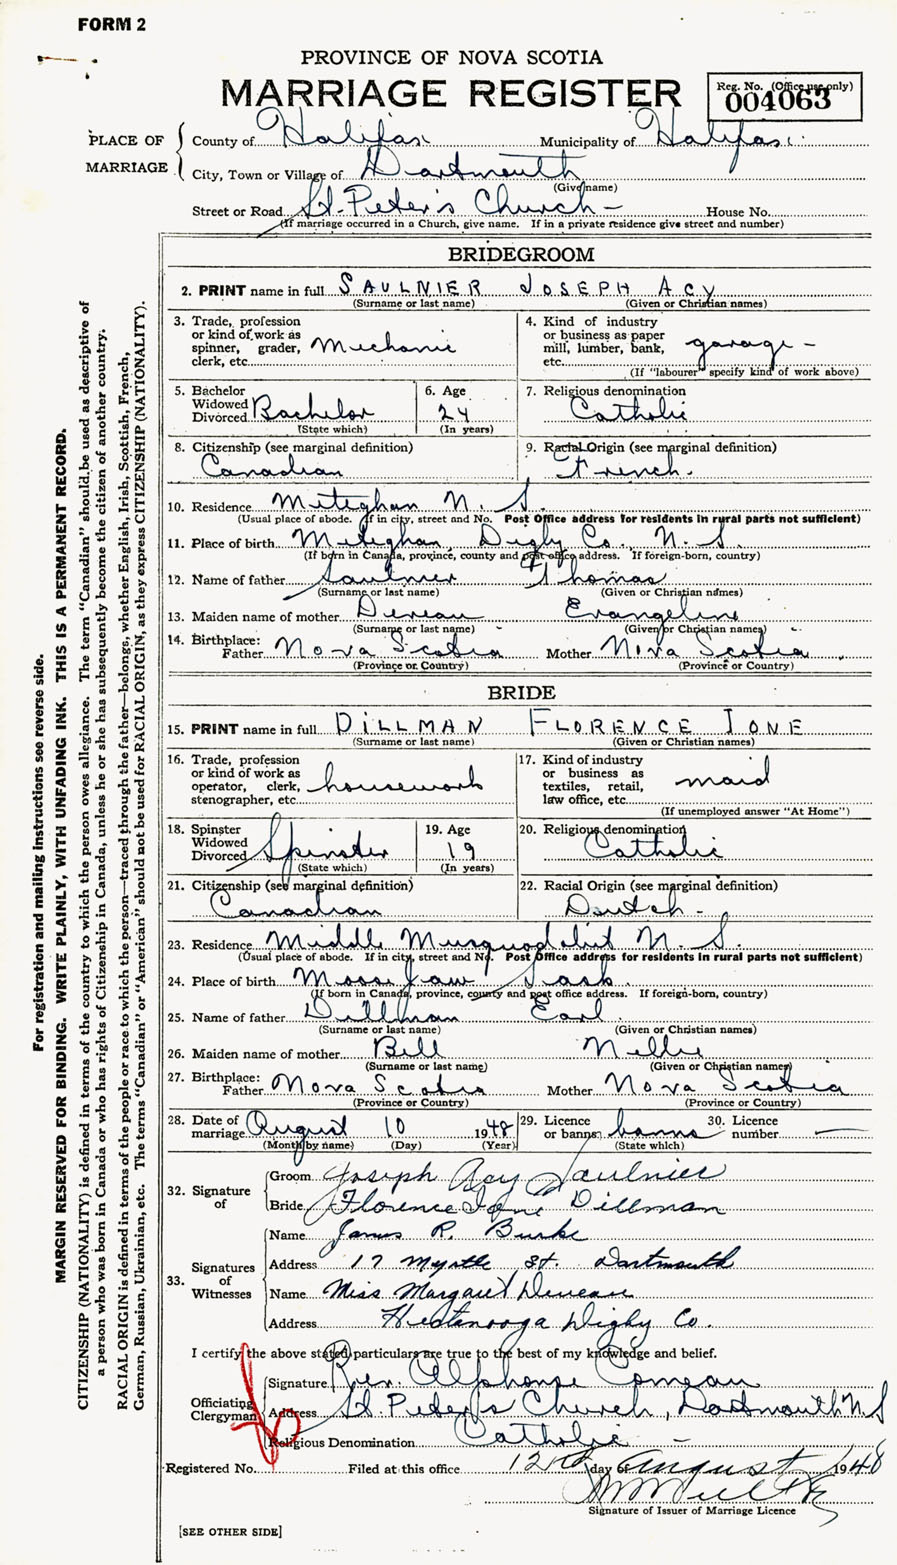 FORM 2
PROVINCE OF NOVA SCOTIA
MARRIAGE REGISTER
Reg. No. (Office use only)
004063
PLACE OF MARRIAGE
County of Halifax Municipality of Halifax
City, Town or Village of Dartmouth
(Give name)
Street or Road St. Peter's Church - House No.
(If marriage occurred in a Church, give name. If in a private residence give street and number)
BRIDEGROOM
2. PRINT name in full SAULNIER JOSEPH ACY
(Surname or last name) (Given or Christian names)
3. Trade, profession or kind of work as spinner, grader, clerk, etc. Mechanic
4. Kind of industry or business as paper mill, lumber, bank, etc. garage -
(If "labourer" specify kind of work above)
5. Bachelor Widowed Divorced Bachelor
(State which)
6. Age 24
(In years)
7. Religious denomination Catholic
8. Citizenship (see marginal definition) Canadian
9. Racial Origin (see marginal definition) French.
10. Residence Meteghan N. S.
(Usual place of abode. If in city, street and No. Post Office address for residents in rural parts not sufficient)
11. Place of birth Meteghan Digby Co. N. S
(If born in Canada, province, county and post office address. If foreign-born, country)
12. Name of father Saulnier Thomas
(Surname or last name) (Given or Christian names)
13. Maiden name of mother Deveau Evangeline
(Surname or last name) (Given or Christian names)
14. Birthplace: Father Nova Scotia Mother Nova Scotia
(Province or Country) (Province or Country)
BRIDE
15. PRINT name in full DILLMAN FLORENCE IONE
(Surname or last name) (Given or Christian names)
16. Trade, profession or kind of work as operator, clerk, stenographer, etc. housework
17. Kind of industry or business as textiles, retail, law office, etc. maid
(If unemployed answer "At Home")
18. Spinster Widowed Divorced Spinster
(State which)
19. Age 19
(In years)
20. Religious denomination Catholic
21. Citizenship (see marginal definition) Canadian
22. Racial Origin (see marginal definition) Deutch -
23. Residence Middle Musquodobit N. S.
(Usual place of abode. If in city, street and No. Post Office address for residents in rural parts not sufficient)
24. Place of birth Moose Jaw Sask.
(If born in Canada, province, county and post office address. If foreign-born, country)
25. Name of father Dillman Earl
(Surname or last name) (Given or Christian names)
26. Maiden name of mother Bell Nellie
(Surname or last name) (Given or Christian names)
27. Birthplace: Father Nova Scotia Mother Nova Scotia
(Province or Country) (Province or Country)
28. Date of marriage August 10 1948
(Month by name) (Day) (Year)
29. Licence or banns banns
(State which)
30. Licence number —
32. Signature of
Groom Joseph Acy Saulnier
Bride Florence Ione Dillman
33. Signatures of Witnesses
Name James R. Burke
Address 17 Myrtle St. Dartmouth
Name Miss Margaret Deveau
Address Hectanooga Digby Co.
I certify the above stated particulars are true to the best of my knowledge and belief.
Officiating Clergyman
Signature Rev. Alphonse Comeau
Address St. Peter's Church, Dartmouth N S
Religious Denomination Catholic -
Registered No. Filed at this office 12th day of August 1948
Signature of Issuer of Marriage Licence
[SEE OTHER SIDE]
For registration and mailing instructions see reverse side.
MARGIN RESERVED FOR BINDING. WRITE PLAINLY, WITH UNFADING INK. THIS IS A PERMANENT RECORD.
CITIZENSHIP (NATIONALITY) is defined in terms of the country to which the person owes allegiance. The term "Canadian" should be used as descriptive of
a person who was born in Canada or who has rights of Citizenship in Canada, unless he or she has subsequently become the citizen of another country.
RACIAL ORIGIN is defined in terms of the people or race to which the person—traced through the father—belongs, whether English, Irish, Scottish, French,
German, Russian, Ukrainian, etc. The terms "Canadian" or "American" should not be used for RACIAL ORIGIN, as they express CITIZENSHIP (NATIONALITY).